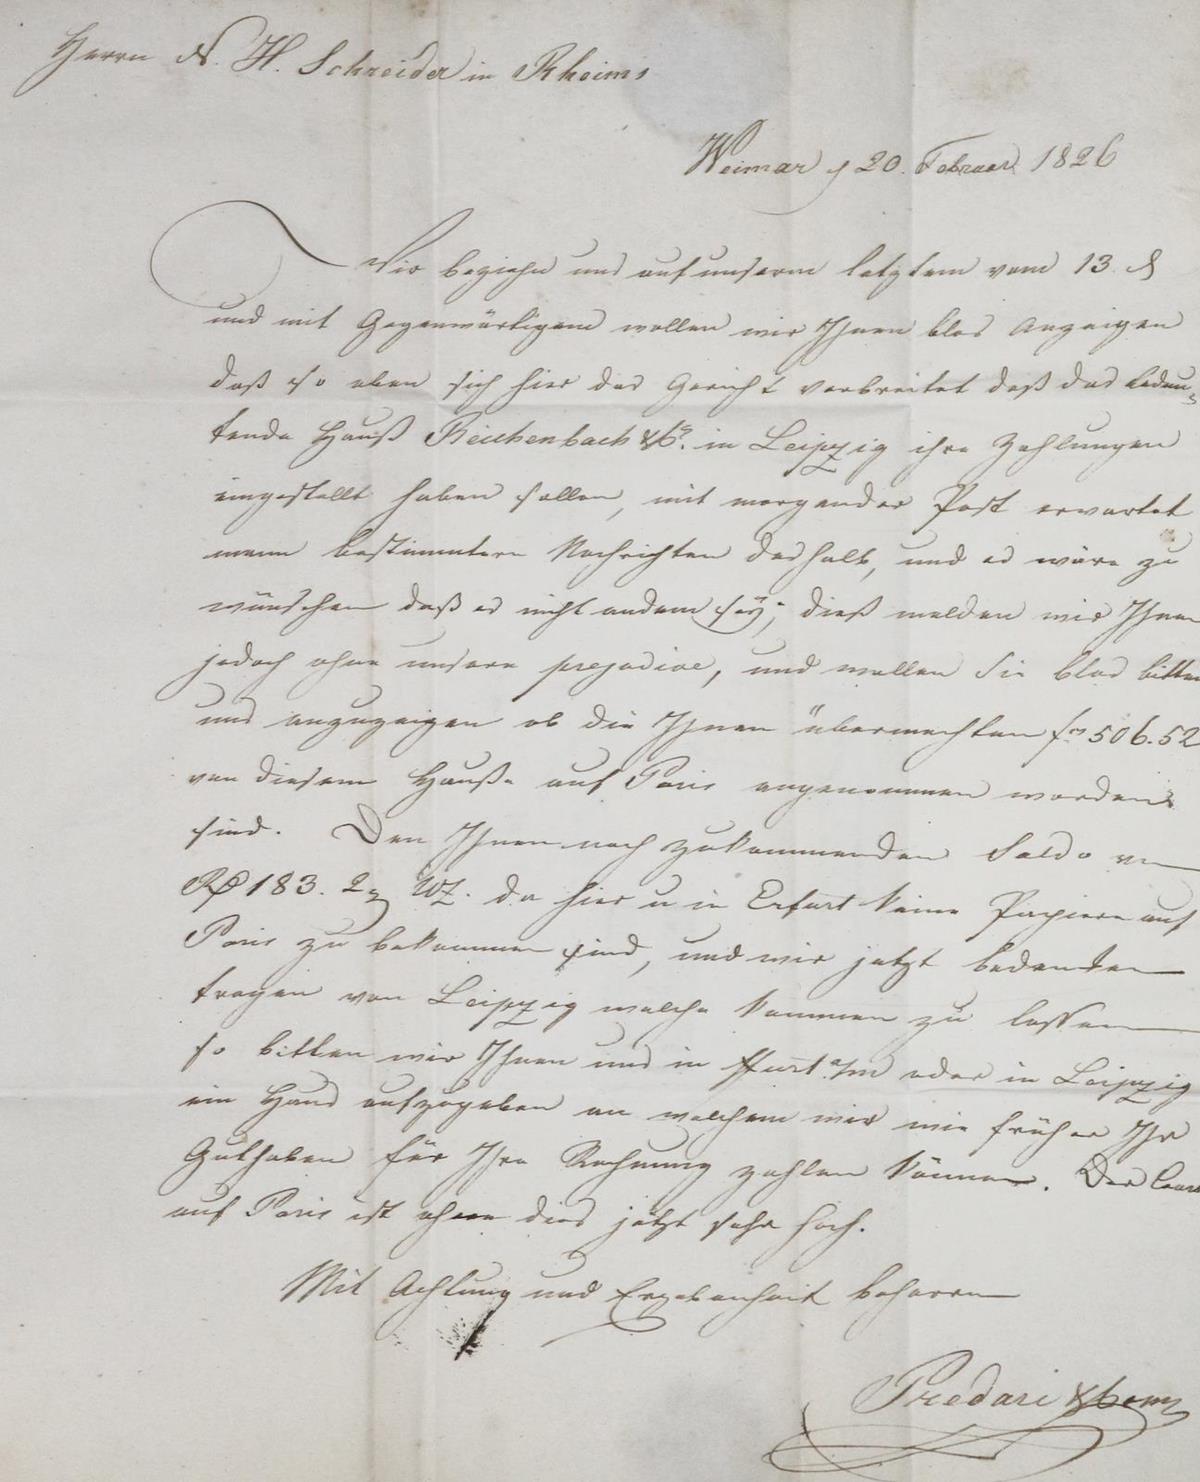 Herrn N. H. Schreider in Rheims
Weimar d 20. Februar 1826
Wir beziehn uns auf unserm letztem vom 13. d
und mit Gegenwärtigem wollen wir Ihnen blos Anzeigen
daß so eben sich hier das Gericht verbreitet daß das bedeu-
tende Hauß Reichenbach & Co. in Leipzig ihre Zahlungen
eingestellt haben sollen, mit morgender Post erwartet
mann bestimmtern Nachrichten deshalb, und es wäre zu
wünschen daß es nicht andem sey; dieß melden wir Ihnen
jedoch ohne unsere prejudice, und wollen Sie blos bitten
uns anzuzeigen ob die Ihnen übermachten fcs 506.52
von diesem Hauße auf Paris angenommen worden
sind. Den Ihnen noch zukommenden Saldo von
Rth 183. 2 WZ. da hier u in Erfurt keine Papiere auf
Paris zu bekommen sind, und wir jetzt bedenken
tragen von Leipzig welche kommen zu lassen
so bitten wir Ihnen uns in ffurt a/m oder in Leipzig
ein Haus aufzugeben an welchem wir wie früher Ihr
Guthaben für Ihre Rechnung zahlen können. Der Cours
auf Paris ist ohne dies jetzt sehr hoch.
Mit Achtung und Ergebenheit beharren
Predari & Comp